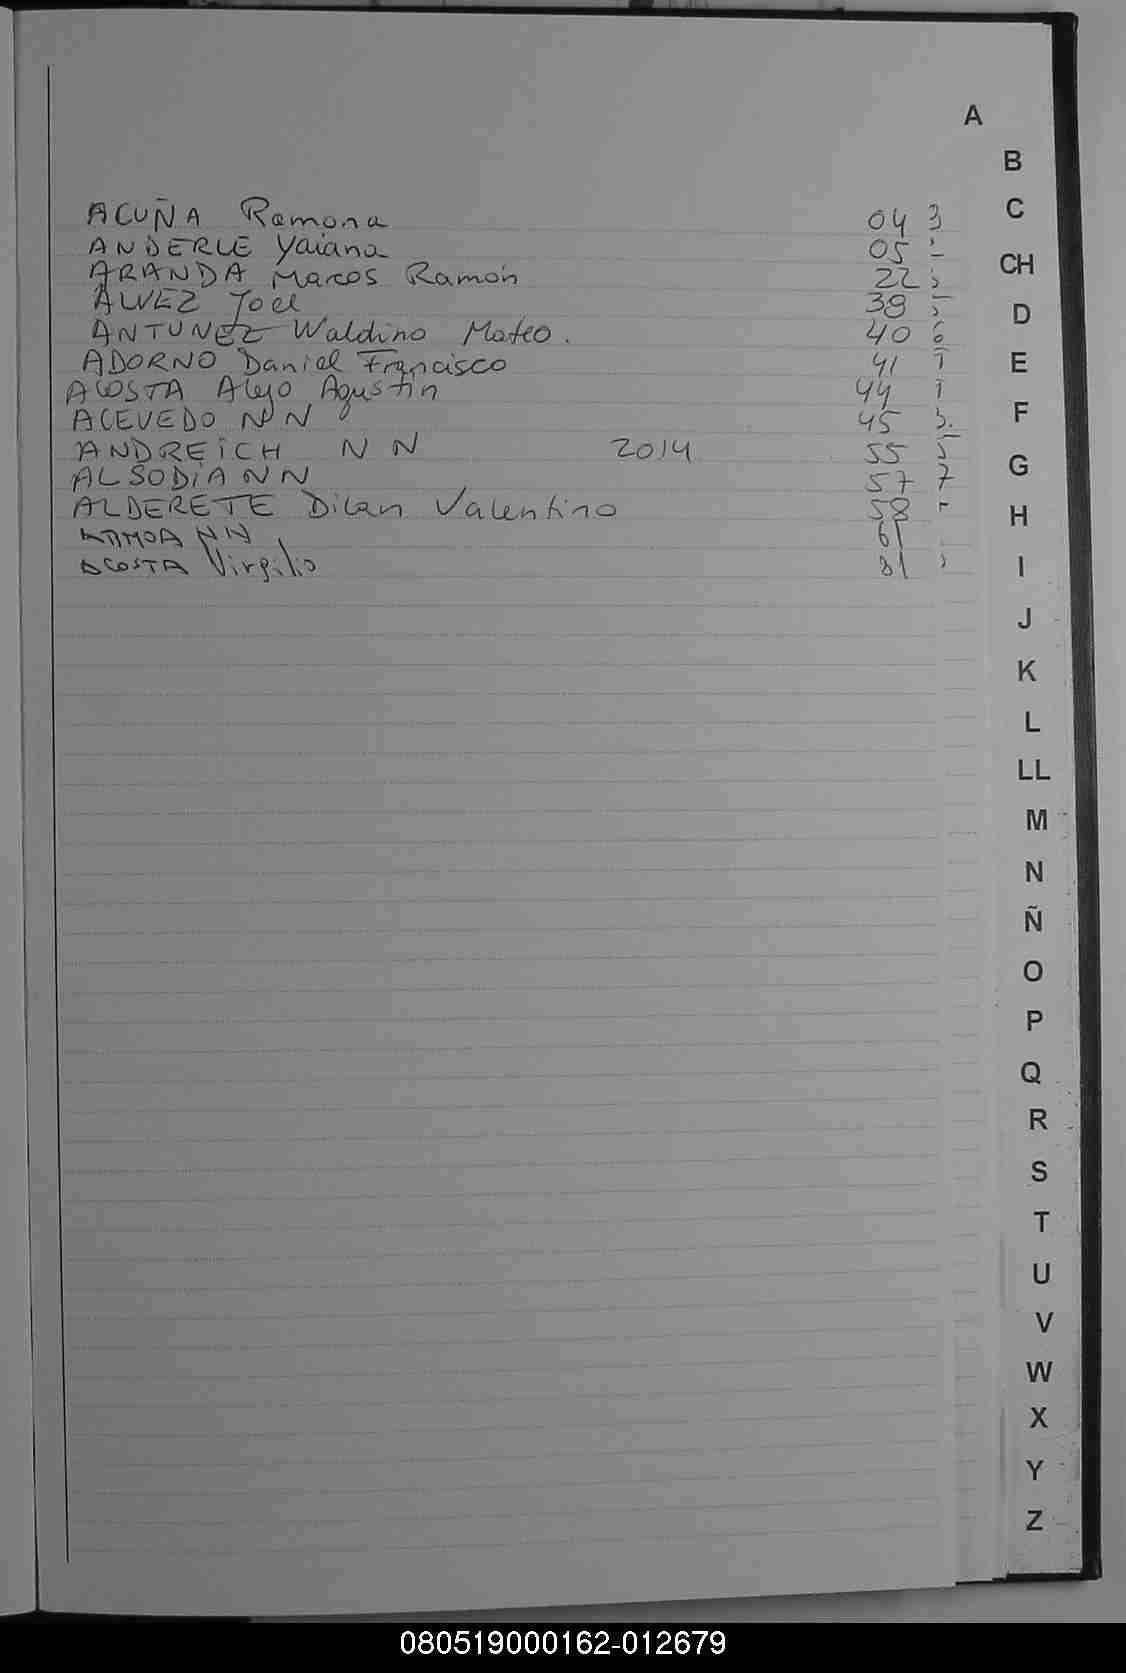 A
B
ACUÑA Ramona 04 3
C
ANDERLE Yaiana 05
CH
ARANDA Marcos Ramón 22
ALVEZ Joel 38
D
ANTUNEZ Waldino Mateo. 40 6
ADORNO Daniel Francisco 41
E
ACOSTA Alejo Agustin 44
ACEVEDO NN 45
F
ANDREiCH NN 2014 55
G
ALSODiA NN 57 7
ALDERETE Dilan Valentino 58
H
NN 61
ACOSTA Virgilio 81
I
J
K
L
LL
M
N
Ñ
O
P
Q
R
S
T
U
V
W
X
Y
Z
080519000162-012679